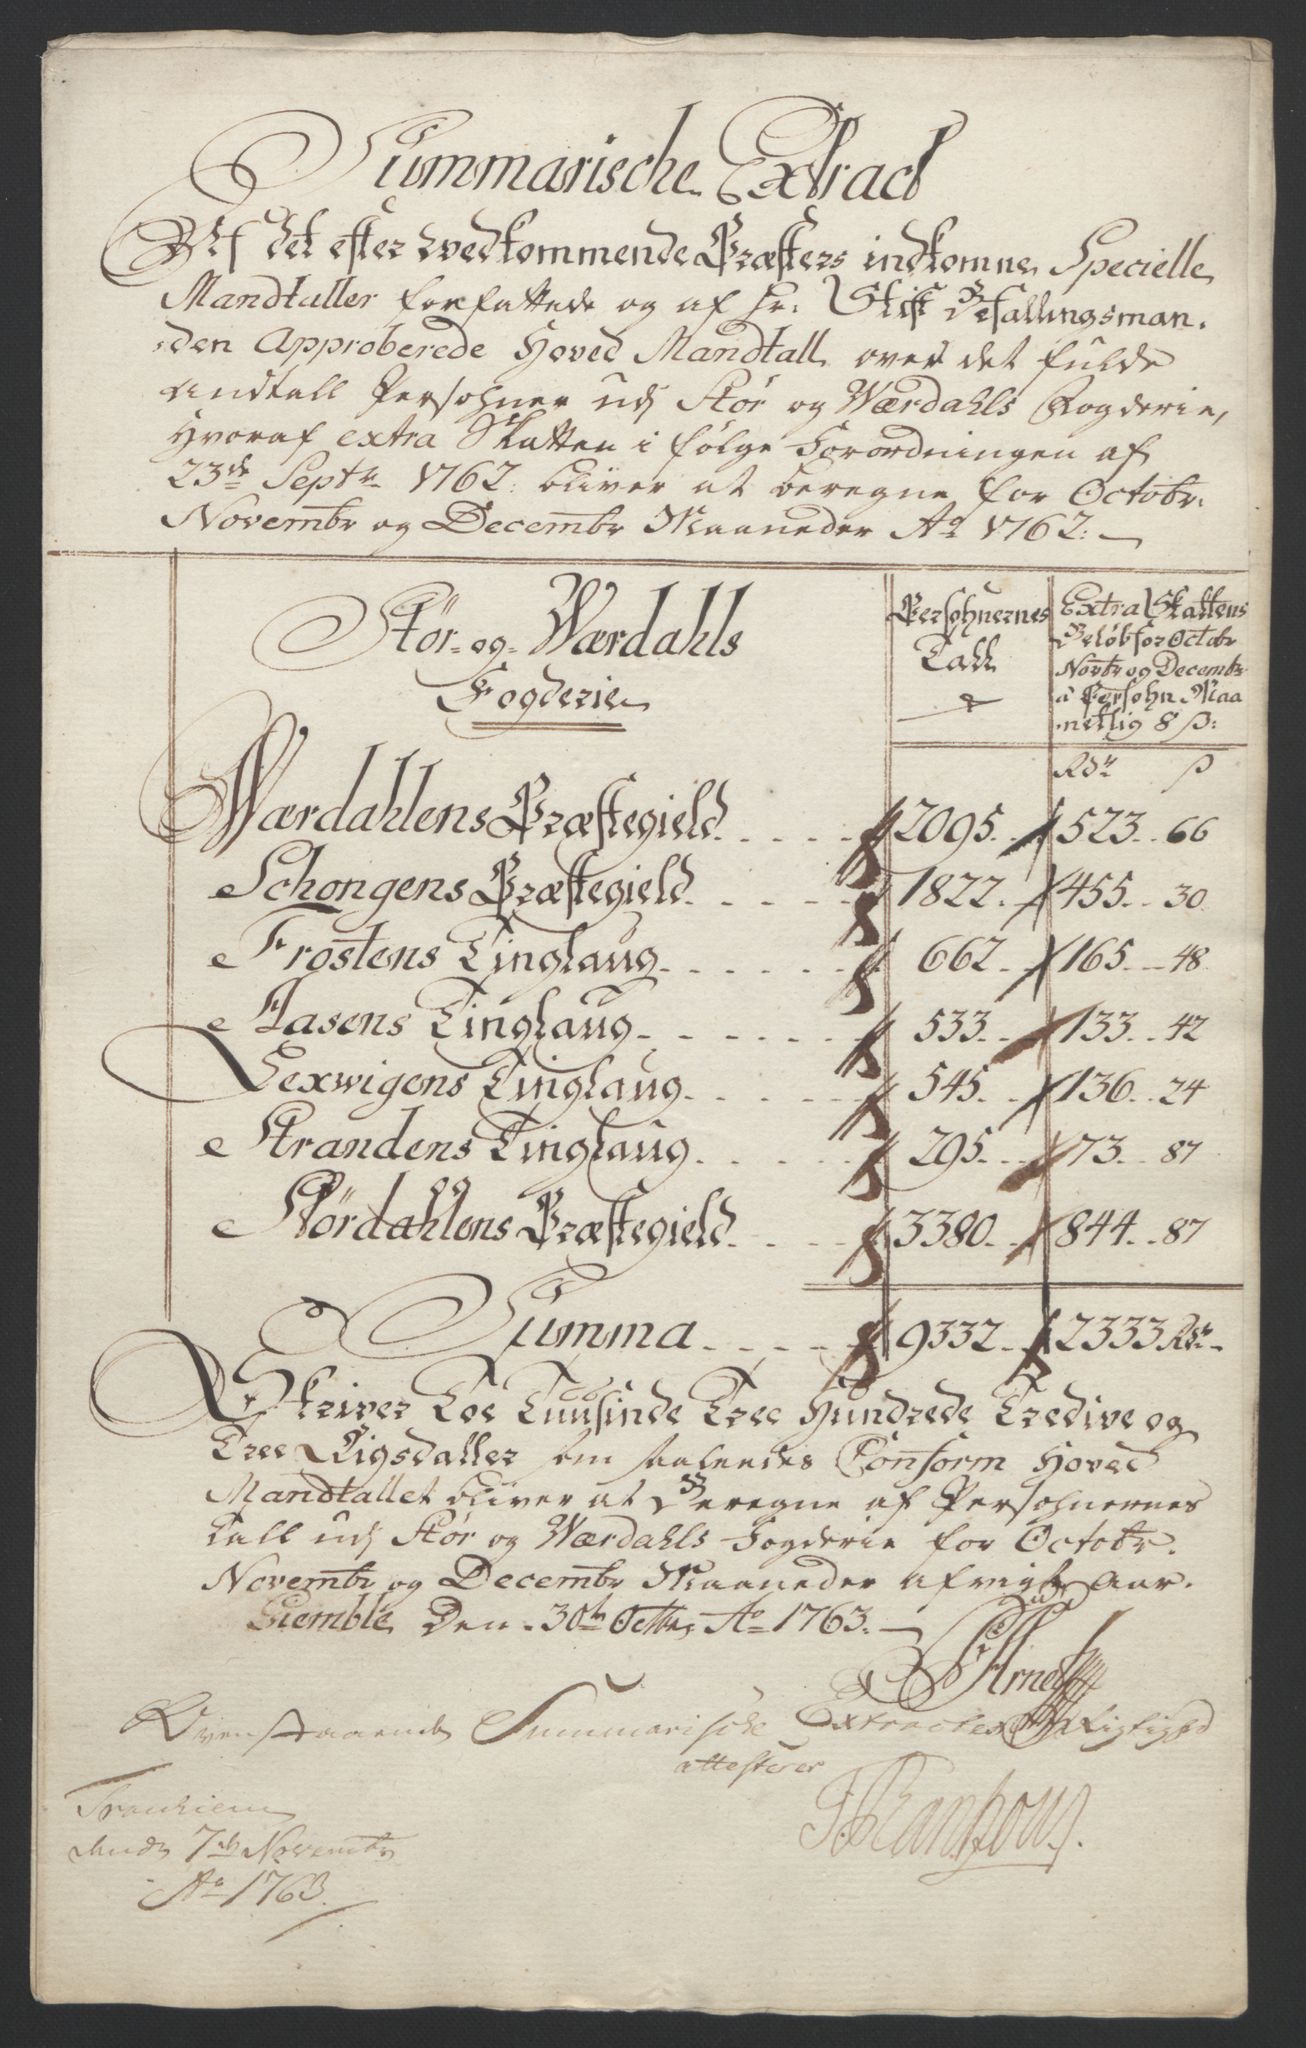 Summarische Extract
Af det efter wedkommende Præsters indkomne Specielle
Mandtaller forfattede og af Hr. Stift Befallingsman-
den Approberede Hoved Mandtall over det fulde
Andtall Persohner udj Stør og Wærdahls Fogderie,
Hvoraf extra Skatten i følge Forordningen af
23de Septr. 1762. bliver at beregne for Octobr.
Novembr og Decembr Maaneder Ao 1762.
Stør- og- Wærdahls
Fogderie
Persohnernes
Tall
Extra Skattens
Beløb for Octobr
Novbr og Decembr
a Persohn Maa
netlig 8 s:
Rdr s
Wærdahlens Præstegield 2095 523 66
Schongens Præstegield 1822 455 30
Frostens Tinglaug 662 165 48
Aasens Tinglaug 533 133 42
Lexwigens Tinglaug 545 136 24
Strandens Tinglaug 295 73 87
Størdahlens Præstegield 3380 844 87
Summa 9332 2333 Rdr
Skriver Toe Tuusinde Tree Hundrede Tredive og
Tree Rigsdaller som saaledes Conform Hoved
Mandtallet bliver at Beregne af Persohnernes
Tall udj Stør og Wærdahls Fogderie for Octobr.
Novembr og Decembr Maaneder afvigt Aar.
Den 30te Ao 1763.
Ovenstaaende Summarische Extractes Rigtighed
attesterer
Tronhiem
dend 7de Novembr
Ao 1763.